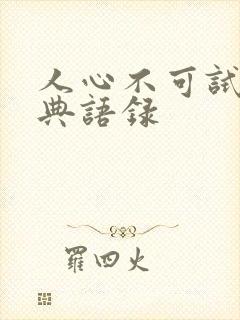 人心不可試
典語録
羅四火